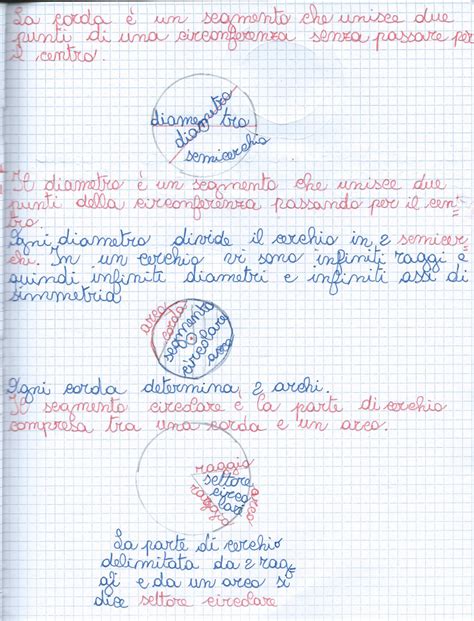 La corda è un segmento che unisce due
punti di una circonferenza senza passare per
il centro.
diametro
diametro
semicerchio
Il diametro è un segmento che unisce due
punti della circonferenza passando per il cen-
tro.
Ogni diametro divide il cerchio in 2 semicer-
chi. In un cerchio vi sono infiniti raggi e
quindi infiniti diametri e infiniti assi di
simmetria
arco
corda
segmento
circolare
arco
Ogni corda determina 2 archi.
Il segmento circolare è la parte di cerchio
compresa tra una corda e un arco.
raggio
settore
circo
lare
raggio
arco
La parte di cerchio
delimitata da 2 rag-
gi e da un arco si
dice settore circolare